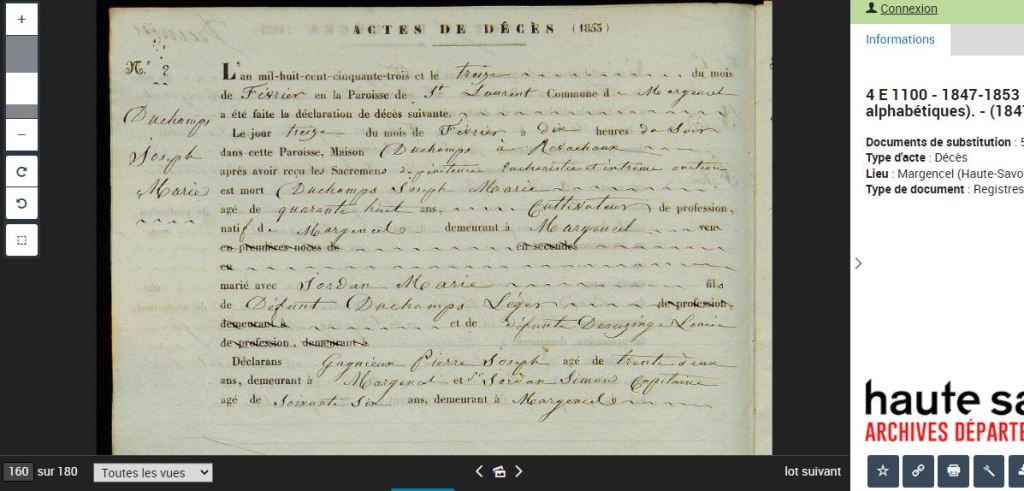 Connexion
Informations
4 E 1100 - 1847-1853
alphabétiques). - (184
Documents de substitution : 5
Type d'acte : Décès
Lieu : Margencel (Haute-Savo
Type de document : Registres
ACTES DE DÉCÈS (1853)
N.° 2
Duchamps
Joseph
Marie
L'an mil-huit-cent-cinquante-trois et le treize du mois
de Février en la Paroisse de St Laurent Commune de Margencel
a été faite la déclaration de décès suivante.
Le jour treize du mois de Février à dix heures du Soir
dans cette Paroisse, Maison Duchamps à
après avoir reçu les Sacremens de pénitence Eucharistie et extrême onction
est mort Duchamps Joseph Marie
agé de quarante huit ans, Cultivateur de profession,
natif de Margencel demeurant à Margencel veuf
en premières noces de en secondes
en
marié avec Jordan Marie fils
de Défunt Duchamps Léger de profession,
demeurant à et de défunte Louise
de profession, demeurant à
Déclarans Pierre Joseph agé de trente deux
ans, demeurant à Margencel et Sr Jordan Simon Capitaine
agé de Soixante Six ans, demeurant à Margencel
haute sa
ARCHIVES DÉPARTE
160 sur 180
Toutes les vues
lot suivant